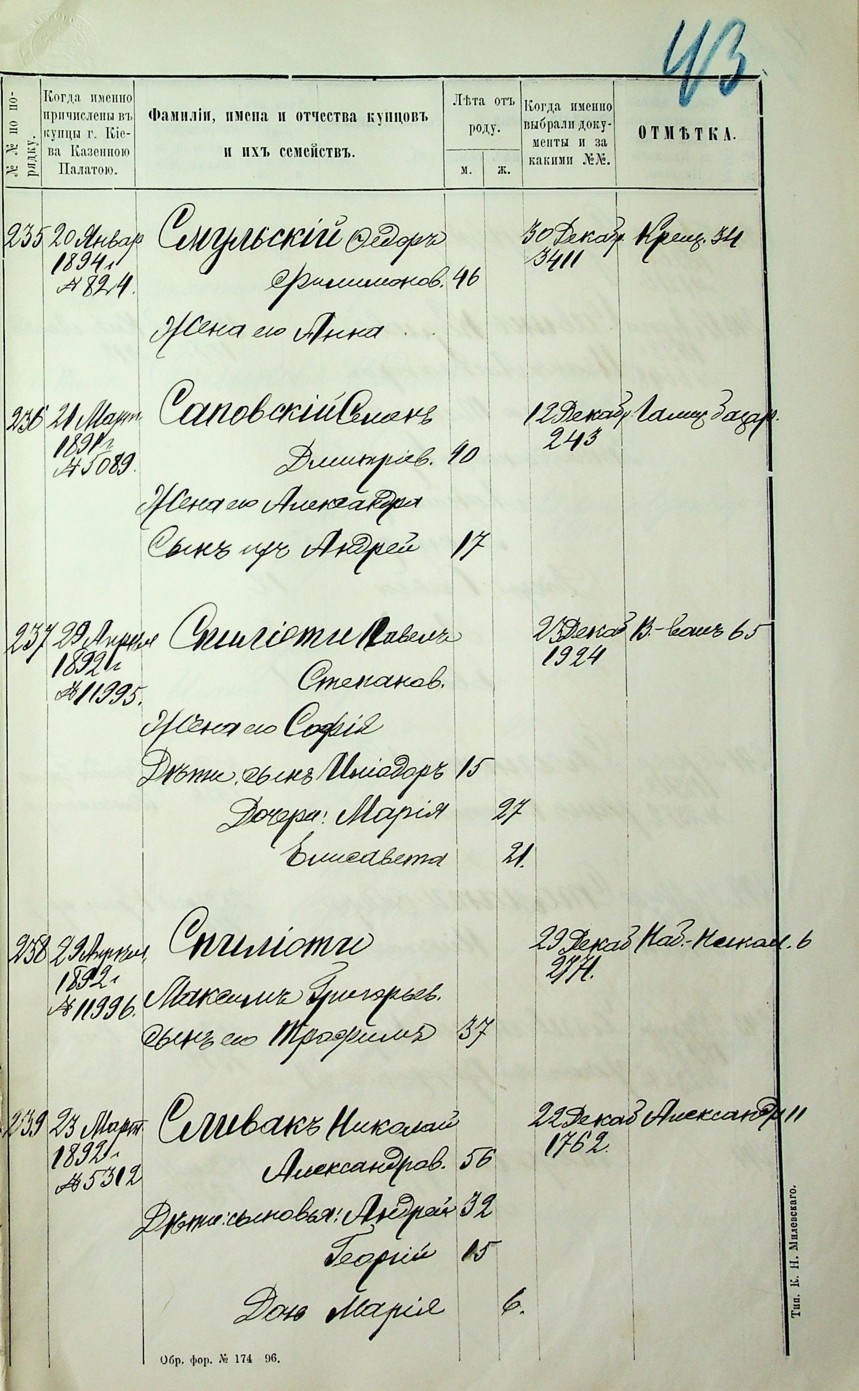 43
№№ по порядку.
Когда именно причислены въ купцы г. Кіева Казенною Палатою.
Фамиліи, имена и отчества купцовъ и ихъ семействъ.
Лѣта отъ роду.
м.
ж.
Когда именно выбрали документы и за какими №№.
ОТМѢТКА.
235 20 Январ Смульскій Ѳедоръ 30 Декаб. Крещ. 34
1894 г. 3411
№ 824. Филимонов. 46
Жена его Анна
236 21 Март Саповскій Семенъ 12 Декаб. Галиц. базар.
1891 г. 243
№ 5089. Дмитріев. 40
Жена его Александра
Сынъ ихъ Андрей 17
237 29 Апреля Спиліоти Павелъ 23 Декаб В.-Вас 65
1892 г. 1924
№ 11995. Степанов.
Жена его Софія
Дѣти: сынъ Иліодоръ 15
Дочери: Марія 27
Елисавета 21.
238 29 Апрел. Спиліоти 29 Декаб Наб.-Никол. 6
1892 г. 2771.
№ 11996. Максимъ Григорьев.
Сынъ его Трофимъ 37
239 23 Март Спивакъ Николай 22 Декаб Александр 11
1892 г. 1762.
№ 5312 Александров. 56
Дѣти: сыновья: Андрей 32
Георгій 15
Дочь Марія 6.
Обр. фор. № 174 96.
Тип. К. Н. Милевскаго.